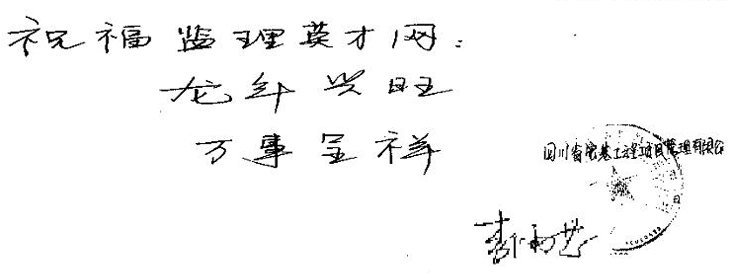 祝福监理英才网:
龙年兴旺
万事呈祥
四川省宏基工程项目管理有限公